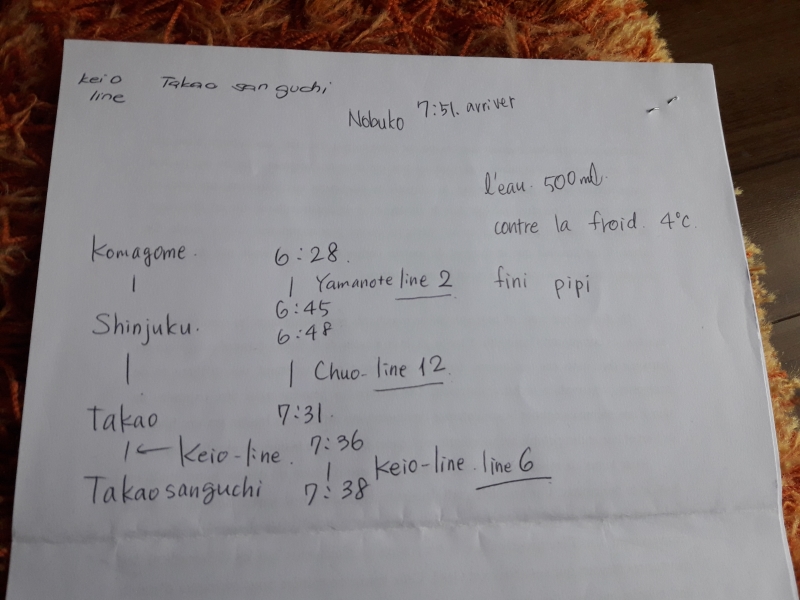 Keio Takao san guchi
line
Nobuko 7:51. arriver
l'eau. 500ml.
contre la froid. 4°c.
Komagome. 6:28.
| | Yamanote line 2 fini pipi
6:45
Shinjuku. 6:48
| | Chuo-line 12
Takao 7:31.
| ← Keio-line. 7:36
| Keio-line. line 6
Takaosanguchi 7:38